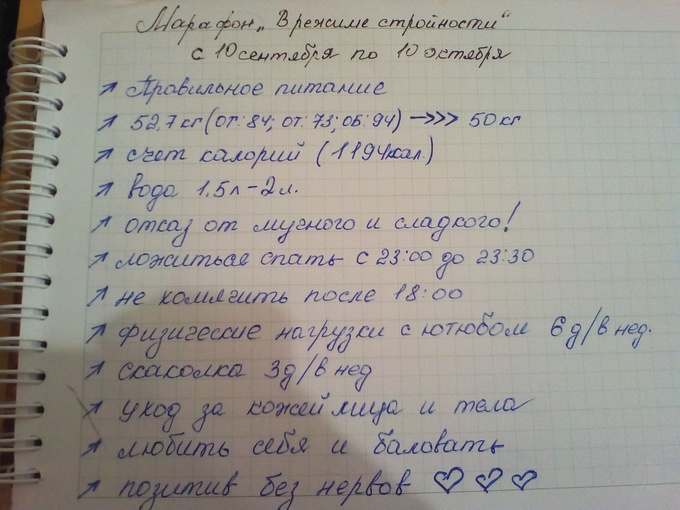 Марафон „В режиме стройности“
с 10 сентября по 10 октября
↗ Правильное питание
↗ 52,7 кг (ОГ:84; ОТ:73; ОБ:94) →>>> 50 кг
↗ счет калорий (1194кал.)
↗ вода 1,5л-2л.
↗ отказ от мучного и сладкого!
↗ ложиться спать с 23:00 до 23:30
↗ не хомячить после 18:00
↗ физические нагрузки с ютюбом 6д/в нед.
↗ скакалка 3д/в нед
↗ уход за кожей лица и тела
↗ любить себя и баловать
↗ позитив без нервов ♡ ♡ ♡